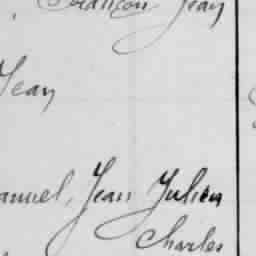 Jean
Jean
anuel, Jean Julien
Charles